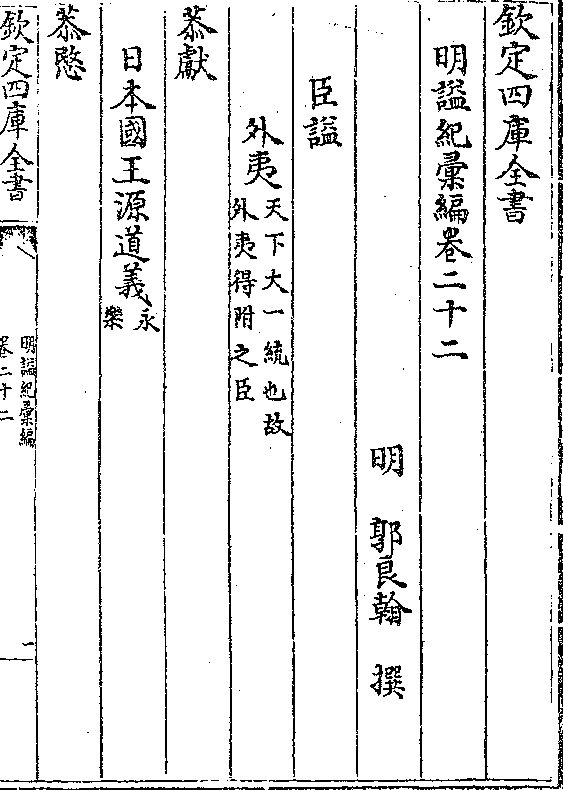 欽定四庫全書
明諡紀彙編卷二十二
明　郭良翰　撰
臣諡
外夷天下大一統也故
外夷得附之臣
恭獻
日本國王源道義永
樂
恭愍
欽定四庫全書
明諡紀彙編
卷二十二
一